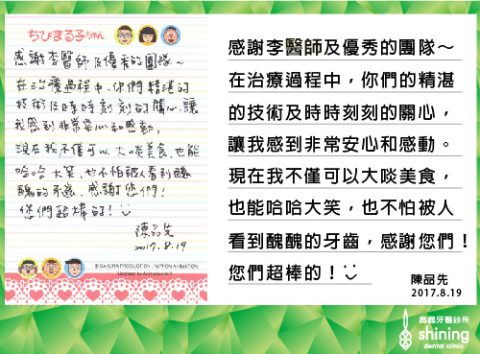 ちびまる子ちゃん
感謝李醫師及優秀的團隊～
在治療過程中,你們精湛的
技術及時時刻刻的關心,讓
我感到非常安心和感動,
現在我不僅可以大啖美食,也能
哈哈大笑,也不怕被人看到醜
醜的牙齒,感謝您們!
您們超棒的!
陳品先
2017.8.19
© SAKURA PRODUCTION / NIPPON ANIMATION
感謝李醫師及優秀的團隊～
在治療過程中,你們的精湛
的技術及時時刻刻的關心,
讓我感到非常安心和感動。
現在我不僅可以大啖美食,
也能哈哈大笑,也不怕被人
看到醜醜的牙齒,感謝您們!
您們超棒的!
陳品先
2017.8.19
晶晶牙醫診所
shining
dental clinic